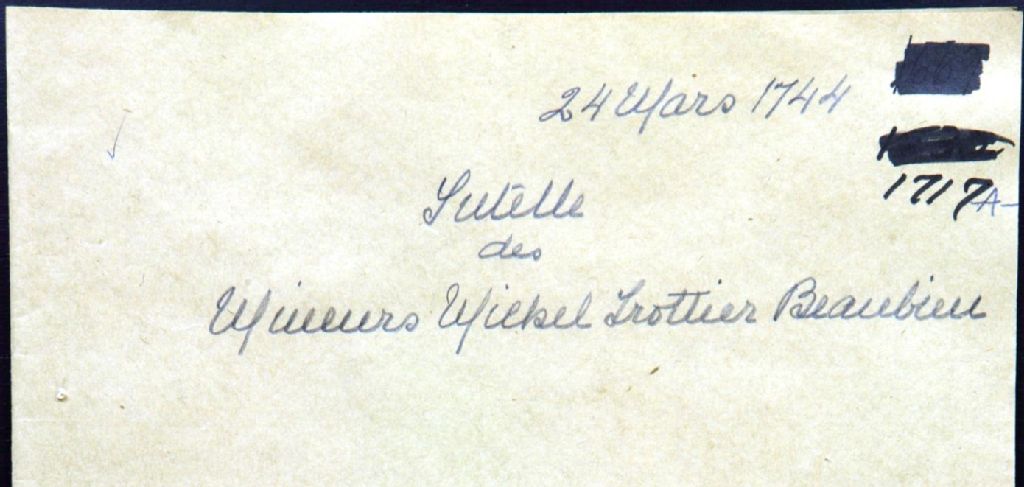 24 Mars 1744
1717 A-
Tutelle
des
Mineurs Michel Trottier Beaubien